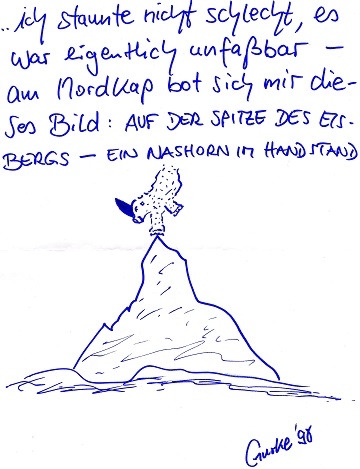 ..ich staunte nicht schlecht, es
war eigentlich unfaßbar –
am Nordkap bot sich mir die-
ses Bild: AUF DER SPITZE DES EIS-
BERGS – EIN NASHORN IM HANDSTAND
Gurke '98